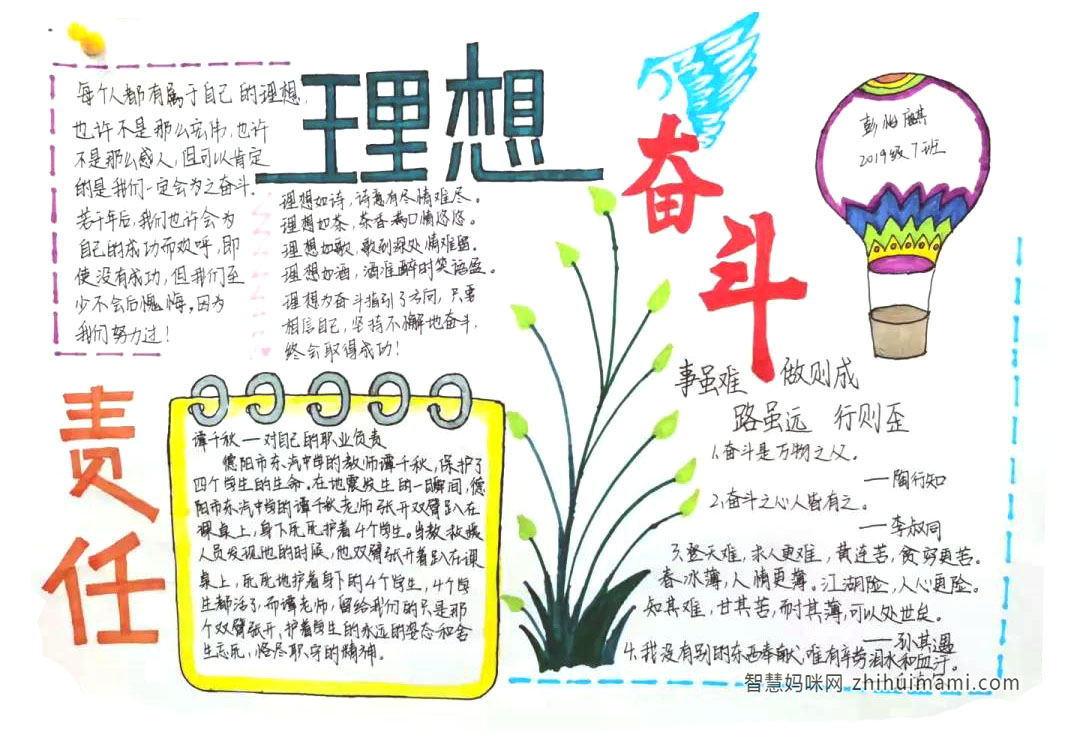 每个人都有属于自己的理想,
也许不是那么宏伟,也许
不是那么感人,但可以肯定
的是我们一定会为之奋斗.
若干年后,我们也许会为
自己的成功而欢呼,即
使没有成功,但我们至
少不会后愧悔,因为
我们努力过!
理想
理想如诗,诗意有尽情难尽。
理想如茶,茶香满口情悠悠。
理想如歌,歌到深处情难留。
理想如酒,酒准醉时笑语盈。
理想为奋斗指引了方向,只要
相信自己,坚持不懈地奋斗,
终会取得成功!
奋
斗
彭柏麒
2019级7班
责
任
谭千秋—对自己的职业负责
德阳市东汽中学的教师谭千秋,保护了
四个学生的生命。在地震发生的一瞬间,德
阳市东汽中学的谭千秋老师张开双臂趴在
课桌上,身下死死护着4个学生。当救援
人员发现他的时候,他双臂张开着趴在课
桌上,死死地护着身下的4个学生,4个学
生都活了,而谭老师,留给我们的只是那
个双臂张开、护着学生的永远的姿态和舍
生忘死,恪尽职守的精神。
事虽难 做则成
路虽远 行则至
1.奋斗是万物之父。
—陶行知
2.奋斗之心人皆有之。
—李叔同
3.登天难,求人更难,黄连苦,贫穷更苦。
春冰薄,人情更薄。江湖险,人心更险。
知其难,甘其苦,耐其薄,可以处世矣。
—孙其遇
4.我没有别的东西奉献,唯有辛劳泪水和血汗。
智慧妈咪网 zhihuimami.com